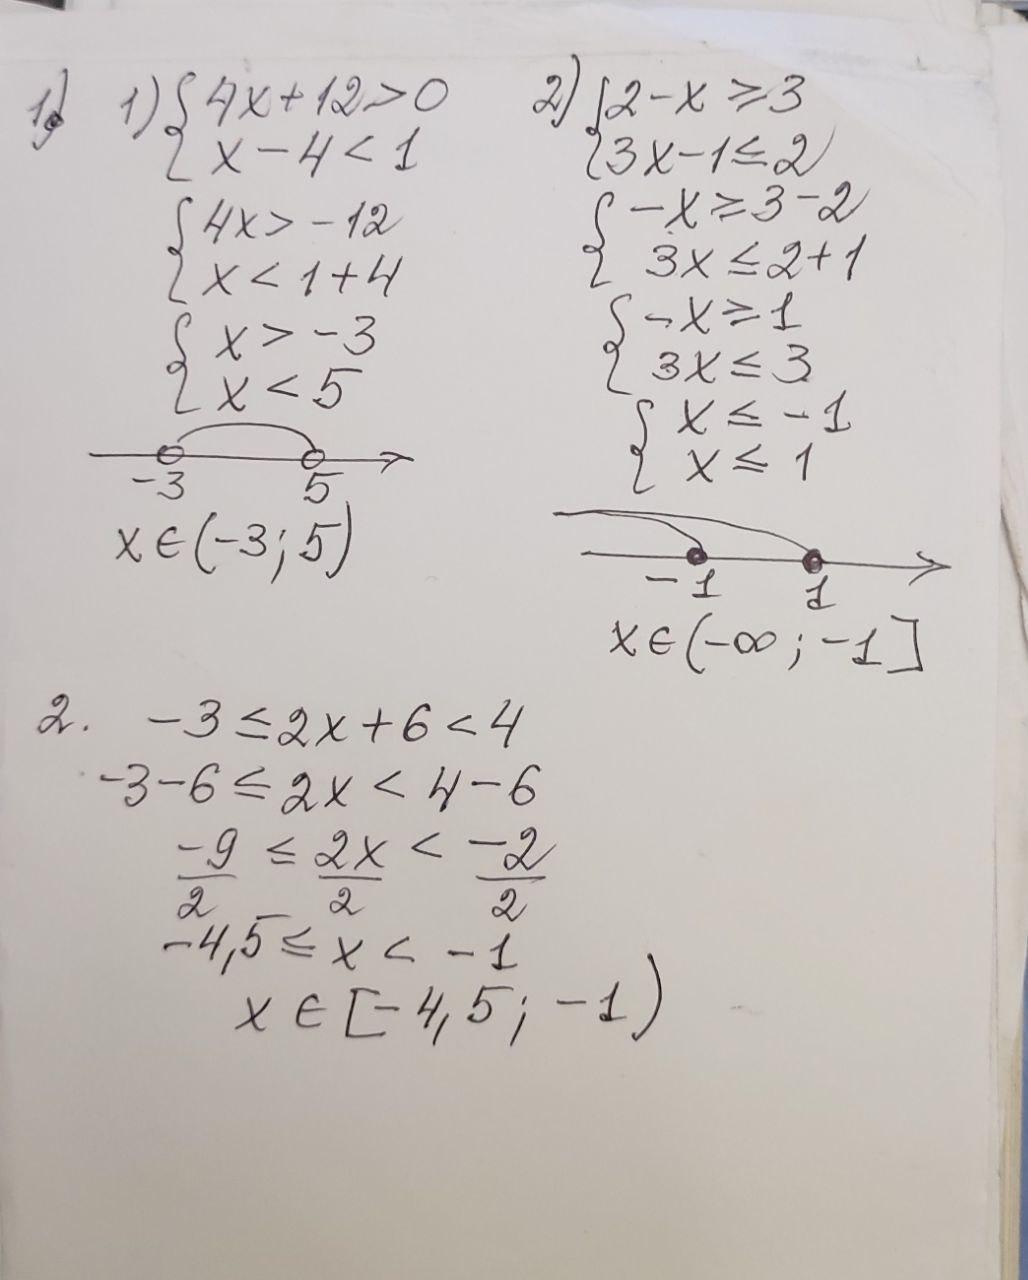 1. 1) { 4x+12>0
x-4<1
{ 4x>-12
x<1+4
{ x>-3
x<5
-3 5
x∈(-3;5)
2) { 2-x≥3
3x-1≤2
{ -x≥3-2
3x≤2+1
{ -x≥1
3x≤3
{ x≤-1
x≤1
-1 1
x∈(-∞;-1]
2. -3≤2x+6<4
-3-6≤2x<4-6
-9/2≤2x/2<-2/2
-4,5≤x<-1
x∈[-4,5;-1)